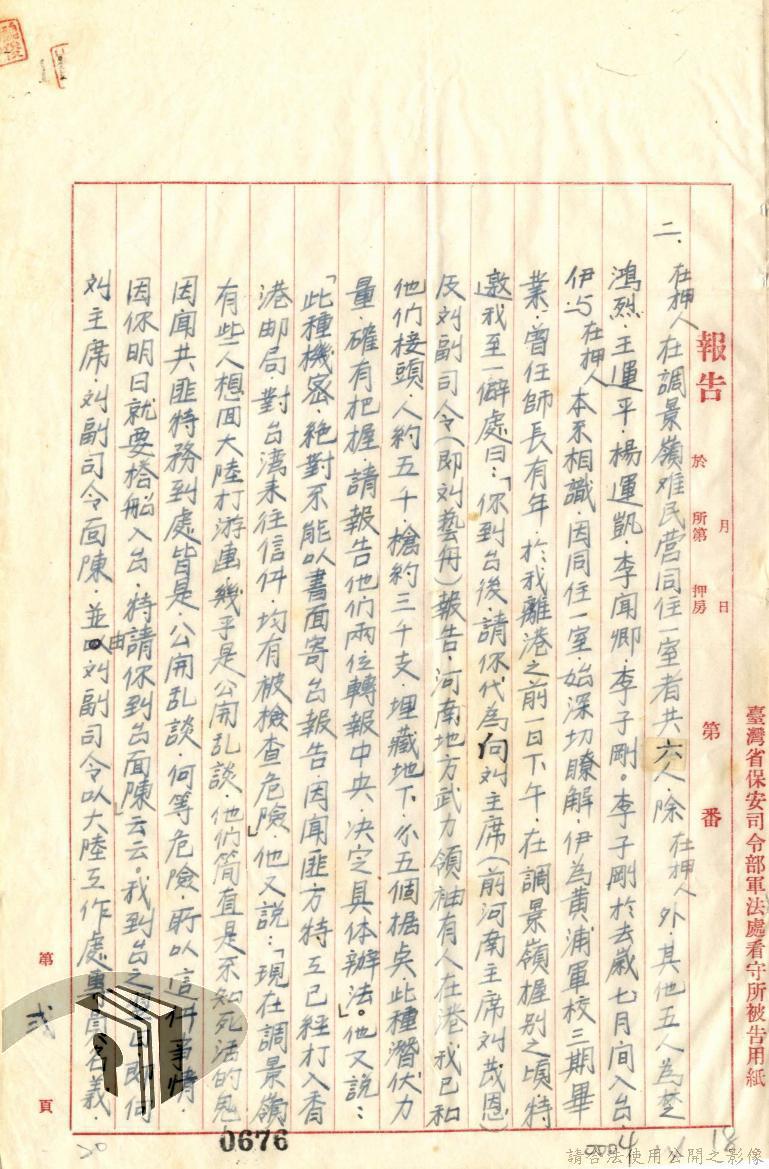 臺灣省保安司令部軍法處看守所被告用紙
報告 於 月 日 所第 押房 第 番
二、在押人在調景嶺难民营同住一室者共六人·除在押人外其他五人為楚
鴻烈·王運平·楊運凱·李闻卿·李子剛。李子剛於去歲七月间入台·
伊与在押人本不相識·因同住一室·始深切瞭解·伊為黄浦軍校三期畢
業·曾任師長有年·於我離港之前一日下午·在調景嶺握别之頃·特
邀我至一僻處曰:「你到台後·請你代為向刘主席(前河南主席刘茂恩)
及刘副司令(即刘藝舟)報告·河南地方武力領袖有人在港·我已和
他们接頭·人約五千·槍約三千支·埋藏地下·分五個据奌·此種潛伏力
量·確有把握·請報告他們兩位轉報中央·决定具体辦法」。他又說:
「此種機密·絕對不能以書面寄台報告·因闻匪方特工已経打入香
港邮局·對台湾来往信件·均有被檢查危險」他又説:「現在調景嶺
有些人想回大陸打游击·幾乎是公開乱談·他们简直是不知死活的鬼
因闻共匪特務到處皆是·公開乱談·何等危險·所以這件事情·
因你明日就要搭船入台·特請你到台面陳」云云。我到台之
刘主席·刘副司令面陳·並由刘副司令以大陸工作處專員名義·
第 弍 頁
0676
0004
18
20
請合法使用公開之影像